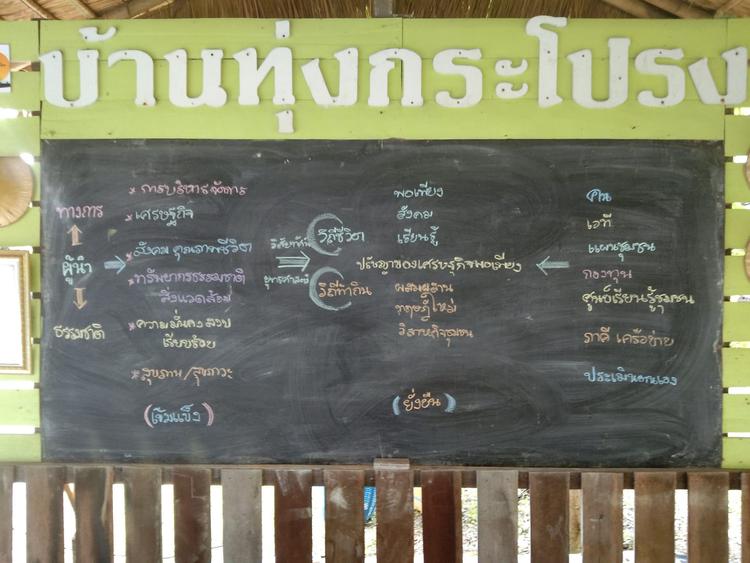 บ้านทุ่งกระโปรง
ทางการ
ผู้นำ
ธรรมชาติ
* การบริหารจัดการ
* เศรษฐกิจ
* สังคม คุณภาพชีวิต
* ทรัพยากรธรรมชาติ
สิ่งแวดล้อม
* ความมั่นคงสงบ
เรียบร้อย
* สุขภาพ/สุขภาวะ
(เข้มแข็ง)
วิสัยทัศน์
ยุทธศาสตร์
วิถีชีวิต
วิถีทำกิน
พอเพียง
สังคม
เรียนรู้
ปรัชญาของเศรษฐกิจพอเพียง
ผสมผสาน
ทฤษฎีใหม่
วิสาหกิจชุมชน
(ยั่งยืน)
คน
เวที
แผนชุมชน
กองทุน
ศูนย์เรียนรู้ชุมชน
ภาคี เครือข่าย
ประเมินตนเอง